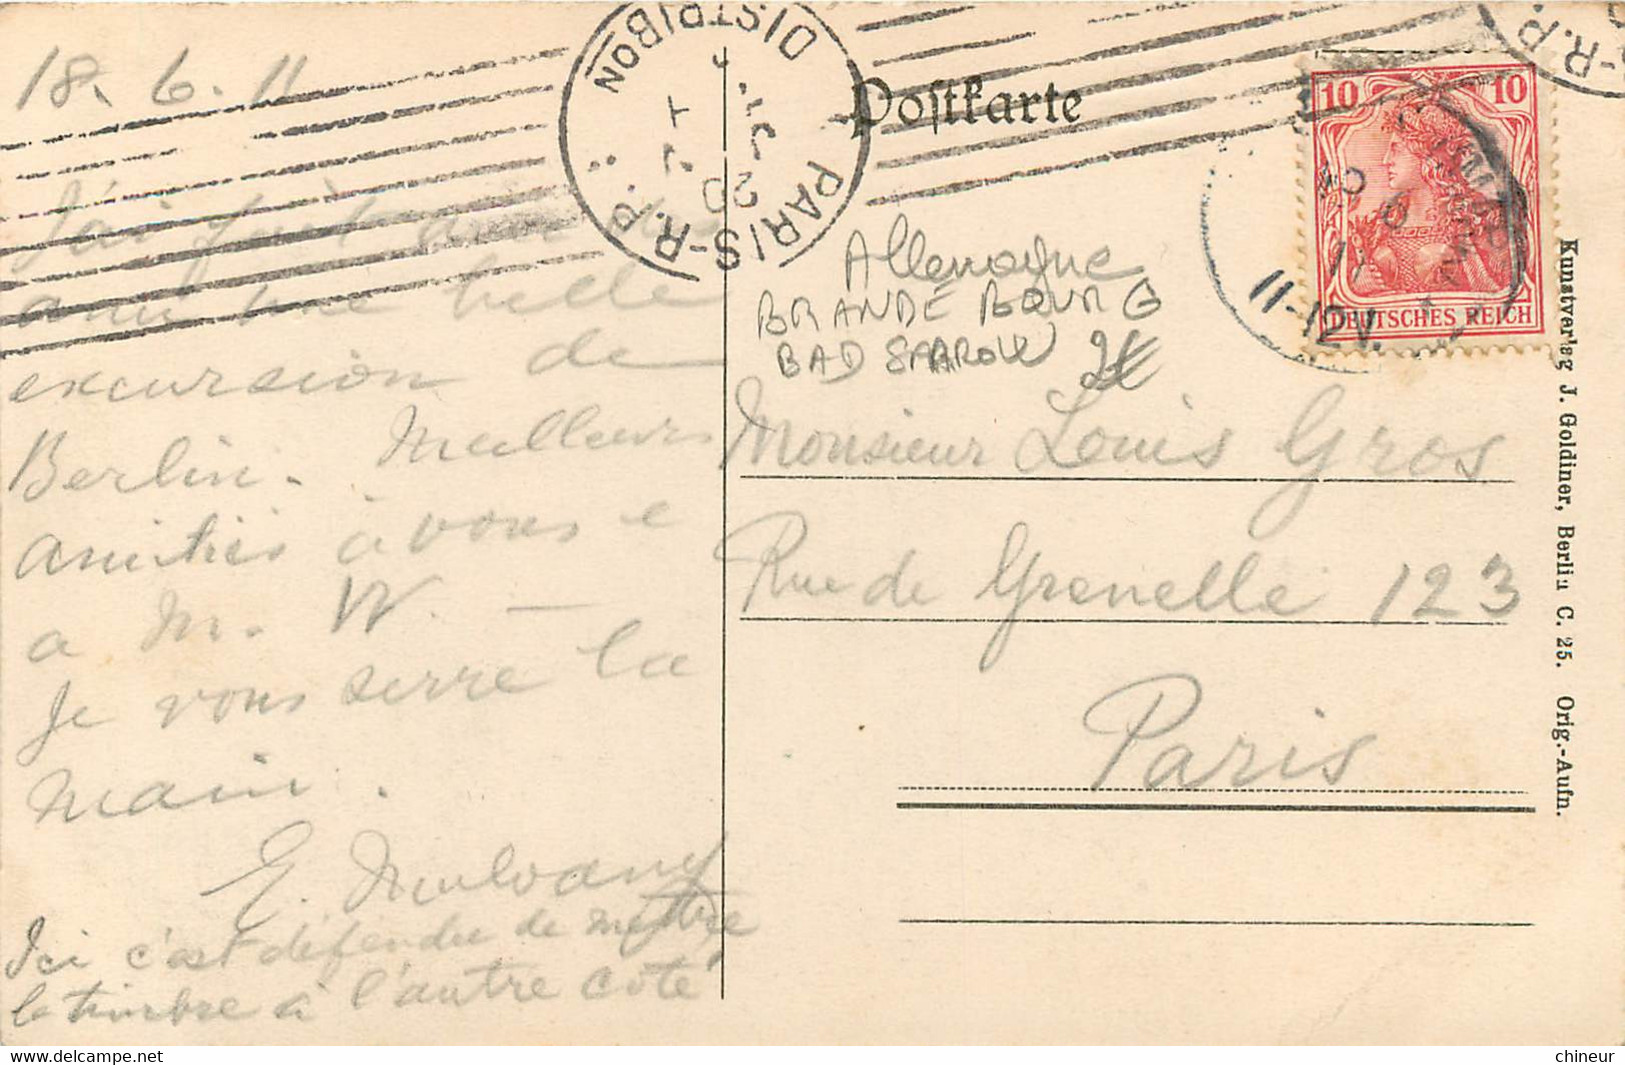 18. 6. 11
J'ai fait
une belle
excursion de
Berlin. Meilleurs
amitiés à vous e
a M. W. —
Je vous serre la
main.
E. Mulvany
Ici c'est défendu de mettre
le timbre à l'autre coté
PARIS-R.P.
DISTRIBON
20
Postkarte
Allemagne
BRANDEBOURG
BAD SAAROW 2€
Monsieur Louis Gros
Rue de Grenelle 123
Paris
10 10
DEUTSCHES REICH
11-12V.
R.P.
Kunstverlag J. Goldiner, Berlin C. 25. Orig.-Aufn.
chineur